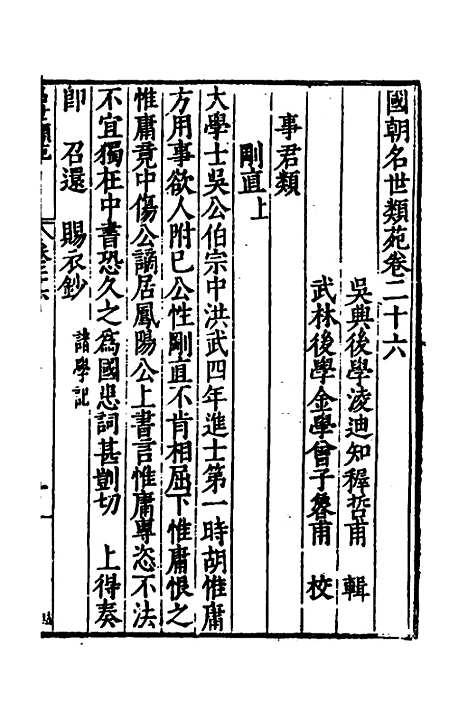 國朝名世類苑卷二十六
吳興後學淩迪知穉哲甫 輯
武林後學金學曾子魯甫 校
事君類
剛直上
大學士吳公伯宗中洪武四年進士第一時胡惟庸
方用事欲人附已公性剛直不肯相屈下惟庸恨之
惟庸竟中傷公謫居鳳陽公上書言惟庸專恣不法
不宜獨在中書恐久之為國患詞甚剴切 上得奏
卽 召還 賜衣鈔 諸學記